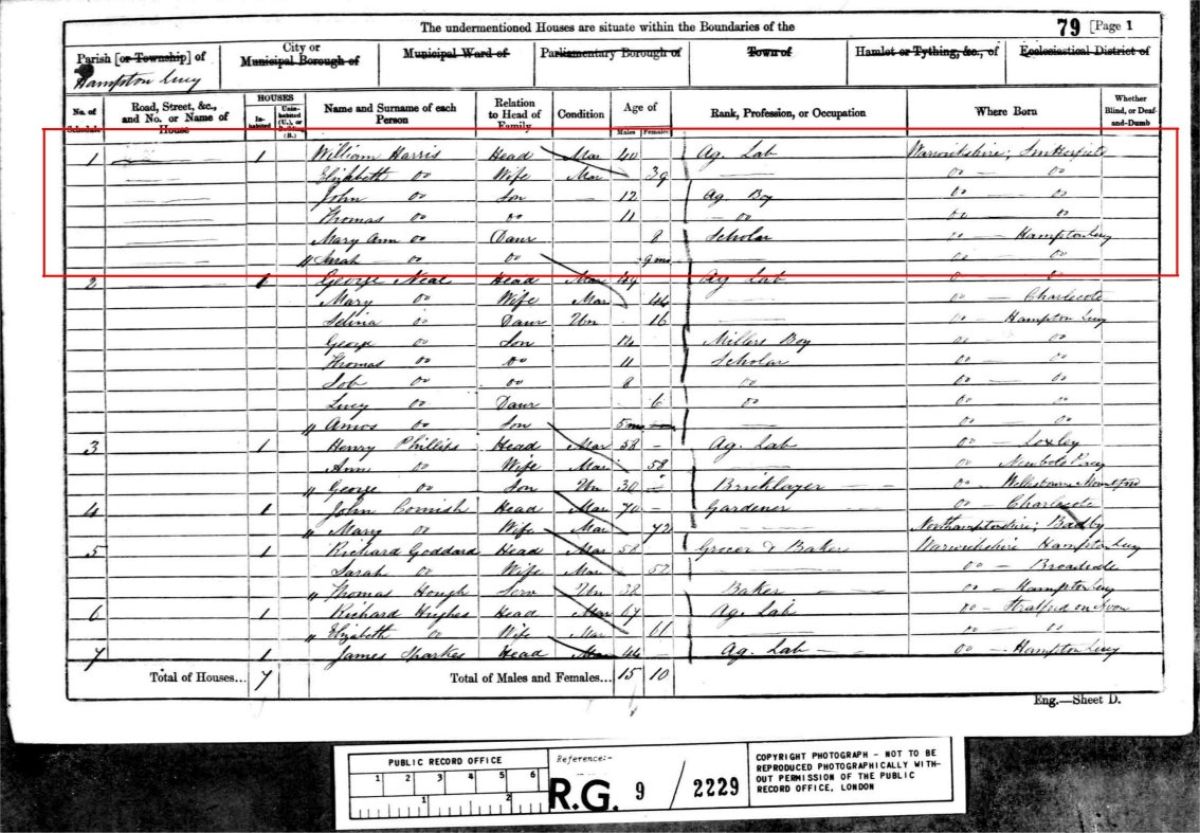 The undermentioned Houses are situate within the Boundaries of the
79 [Page 1
Parish [or Township] of
City or Municipal Borough of
Municipal Ward of
Parliamentary Borough of
Town of
Hamlet or Tything, &c., of
Ecclesiastical District of
Hampton Lucy
No. of Schedule
Road, Street, &c., and No. or Name of House
HOUSES
Inhabited
Uninhabited (U.), or Building (B.)
Name and Surname of each Person
Relation to Head of Family
Condition
Age of
Males
Females
Rank, Profession, or Occupation
Where Born
Whether Blind, or Deaf-and-Dumb
1 1 William Harris Head Mar 40 Ag. Lab Warwickshire;
Elizabeth Do Wife Mar 39 Do Do
John Do Son 12 Ag. Boy Do Do
Thomas Do Do 11 Do Do Do
Mary Ann Do Daur 8 Scholar Do Hampton Lucy
" Sarah Do Do 9 mo Do Do
2 1 George Neal Head Mar 49 Ag Lab Do Do
Mary Do Wife Mar 44 Do Charlecote
Selina Do Daur Un 16 Do Hampton Lucy
George Do Son 14 Millers Boy Do Do
Thomas Do Do 11 Scholar Do Do
Job Do Do 8 Do Do Do
Lucy Do Daur 6 Do Do Do
" Amos Do Son 5 mo Do Do
3 1 Henry Phillips Head Mar 58 Ag. Lab Do Loxley
Ann Do Wife Mar 58 Do Newbold
" George Do Son Un 30 Bricklayer Do Wellesbourne Mountford
4 1 John Cornish Head Mar 70 Gardener Do Charlecote
" Mary Do Wife Mar 72 Northamptonshire; Badby
5 1 Richard Goddard Head Mar 58 Grocer & Baker Warwickshire Hampton Lucy
Sarah Do Wife Mar 52 Do
" Thomas Hough Serv Un 32 Baker Do Hampton Lucy
6 1 Richard Hughes Head Mar 67 Ag. Lab Do Stratford on Avon
" Elizabeth Do Wife Mar 61 Do Do
7 1 James Sparkes Head Mar 44 Ag. Lab Do Hampton Lucy
Total of Houses... 7
Total of Males and Females... 15 10
Eng.—Sheet D.
PUBLIC RECORD OFFICE
1 2 3 4 5 6
1 2
Reference:-
R.G. 9 / 2229
COPYRIGHT PHOTOGRAPH - NOT TO BE
REPRODUCED PHOTOGRAPHICALLY WITH-
OUT PERMISSION OF THE PUBLIC
RECORD OFFICE, LONDON